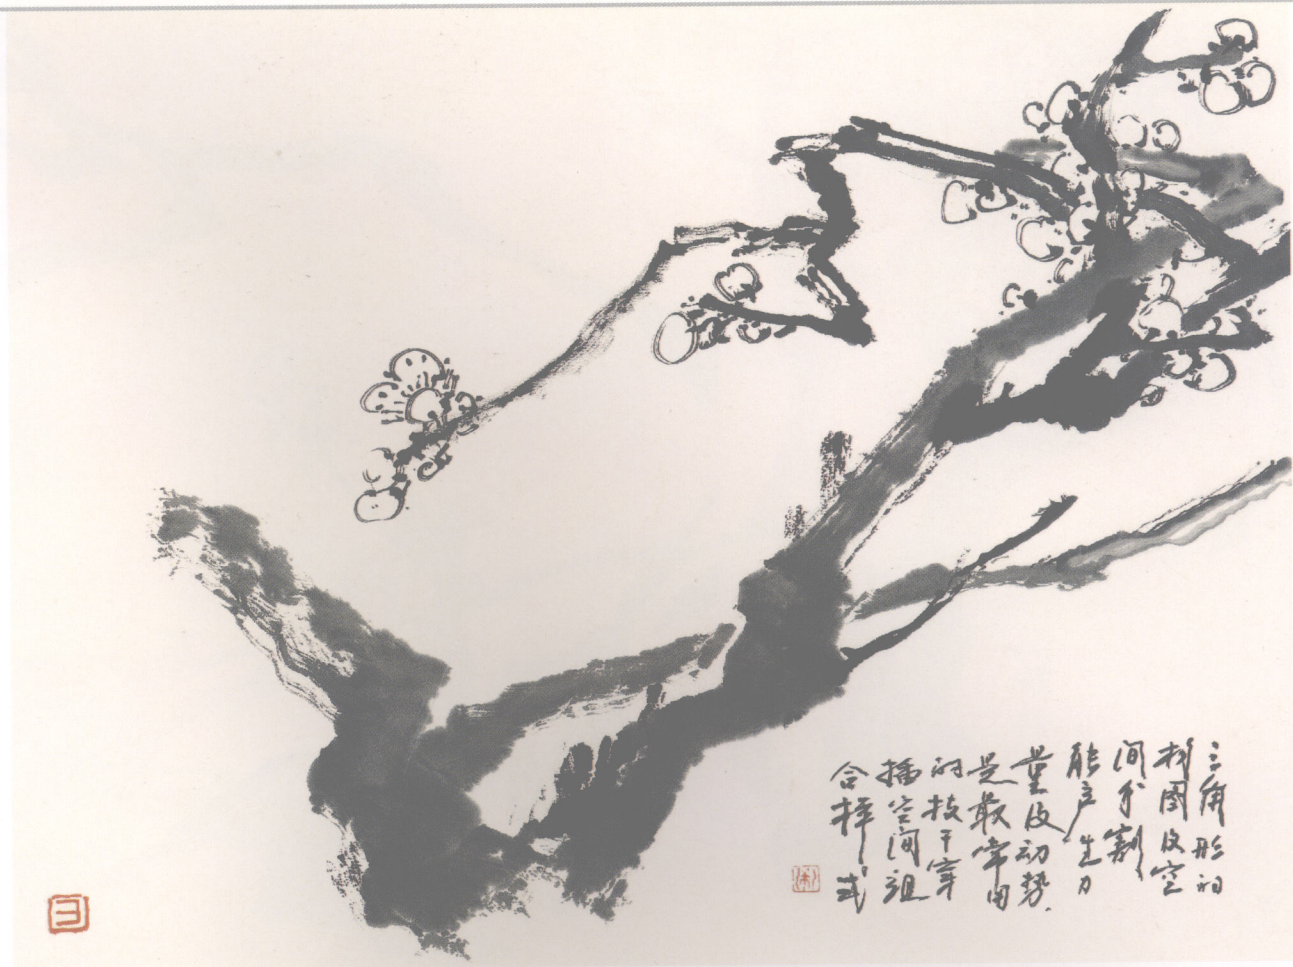 三角形的
构图及空
间分割
能产生力
量及动势.
是最常用
的枝干穿
插空间组
合样式